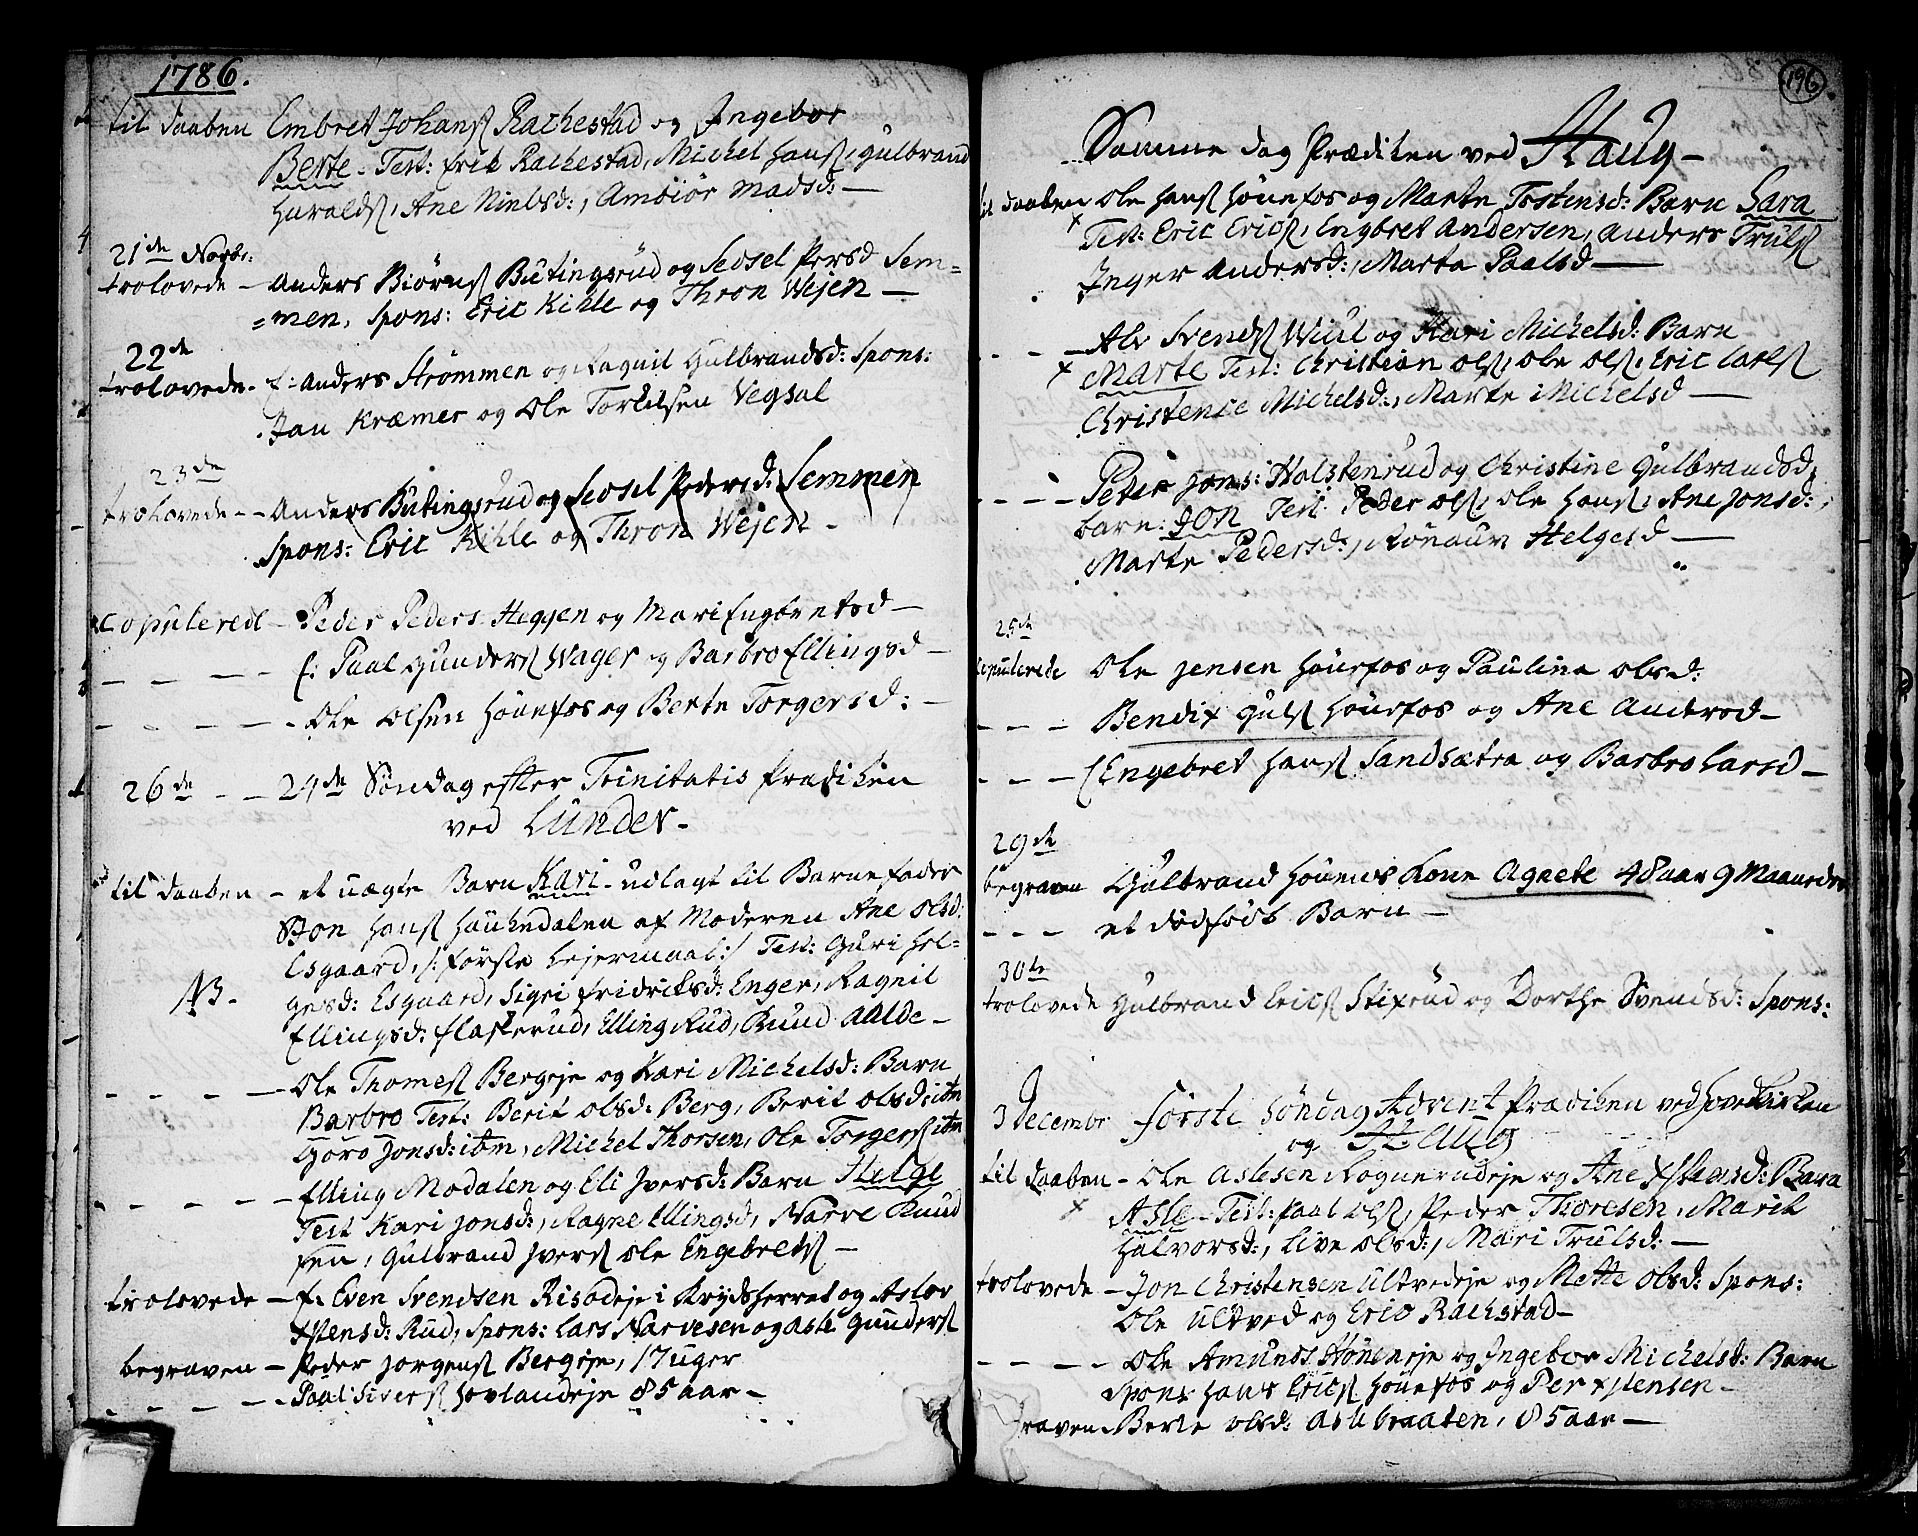 1786.
til daaben Embret Johanſ Rachestad og Ingebor
Berte - Test: Erik Rachestad, Michel Hanſ, Gulbrand
Haraldſ, Ane Nielsd:, Ambiör Madsd: —
21de Novbr:
trolovede — Anders Biörnſ Butingsrud og Sedsel Persd Sem=
=men, Spons: Eric Kihle og Thron Wejen —
22de
trolovede - f: Anders Strömmen og Ragnil Gulbrandsd: Spons:
Jan Kræmer og Ole Torkilsen Vegsal
23de
trolovede - - Anders Butingsrud og Sedsel Pedersd: Semmen
Spons: Eric Kihle og Thron Wejen -
copulerede - Peder Peders Heggen og Mari Engbretsd —
— — — - f: Paal Gunderſ Wager og Barbro Ellingsd —
- - - — - Ole Olsen Hönefos og Berte Torgersd: —
26de - — 24de Söndag efter Trinitatis Prædiken
ved Lunder -
til daaben - et uægte Barn Kari - udlagt til Barnefader
Jon Hanſ Haukedalen af Moderen Ane Olsd:
Esgaard, /: förste Lejermaal :/ Test: Guri Hel-
NB. gesd: Esgaard, Sigri Fridricksd: Enger, Ragnil
Ellingsd: Flaskerud, Elling Rud, Knud Aalde -
- - - — Ole Thomeſ Bergeje og Kari Michelsd: Barn
Barbro Test: Berit Olsd: Berg, Berit Olsd: ibm
Goro Jonsd: ibm, Michel Thorsen, Ole Torgerſ ibm
- - - — Elling Modalen og Eli Iversd: Barn Helge
Test Kari Jonsd:, Ragne Ellingsd, Narve Knud
sen, Gulbrand Iverſ Ole Engebretſ —
trolovede — f: Even Svendsen Risodeje i Krydsherret og Aslor
Xstensd: Rud, Spons: Lars Narvesen og Asle Gunderſ
begraven — Peder Jorgenſ Bergeje, 17 uger
- - - - - Paal Siverſ Hovlandeje 85 aar -
196
Samme dag Prædiken ved Haug -
til daaben Ole Hanſ Hönefos og Marte Tostensd: Barn Sara
x Test: Eric Ericſ, Engbret Andersen, Anders Trulſ
Inger Andersd:, Marta Paalsd —
- - - — Ole Svendſ Wiul og Kari Michelsd: Barn
x Marte Test: Christian Olſ, Ole Olſ, Eric Carlſ
Christence Michelsd:, Marte Michelsd —
- - - — Peder Jons: Holstenrud og Christine Gulbrandsd,
barn: Jon Test: Peder Olſ, Ole Hanſ, Ane Jonsd:,
Marte Pedersd:, Rönauv Helgesd —
25de
copulerede Ole Jensen Hönefos og Paulina Olsd:
- - - Bendix Gulſ Hönefos og Ane Andersd -
- - - Engebret Hanſ Sandsætra og Barbro Larsd —
29de
begraven Gulbrand Hönens Kone Agnete 48 aar 9 Maaneder
- - - et dödfödt Barn —
30te
trolovede Gulbrand Ericſ Stixrud og Dorthe Svendsd: Spons:
3 Decembr Förste Söndag Advent Prædiken ved Hovedkirken
og Haug
til daaben - Ole Aslesen Rognerudeje og Ane Xstensd: Barn
x Asle - Test: Paal Olſ, Peder Thoresen, Marit
Halvorsd:, Live Olsd:, Mari Trulsd: —
trolovede — Jon Christensen Ultvedeje og Mette Olsd: Spons:
Ole Ultved og Eric Rachstad —
- - - - Ole Amunds Höneneje og Ingebor Michelsd: Barn
Spons Hans Ericſ Hönefos og Per Xstensen -
raven Berte Olsd: Askbraaten, 85 aar —